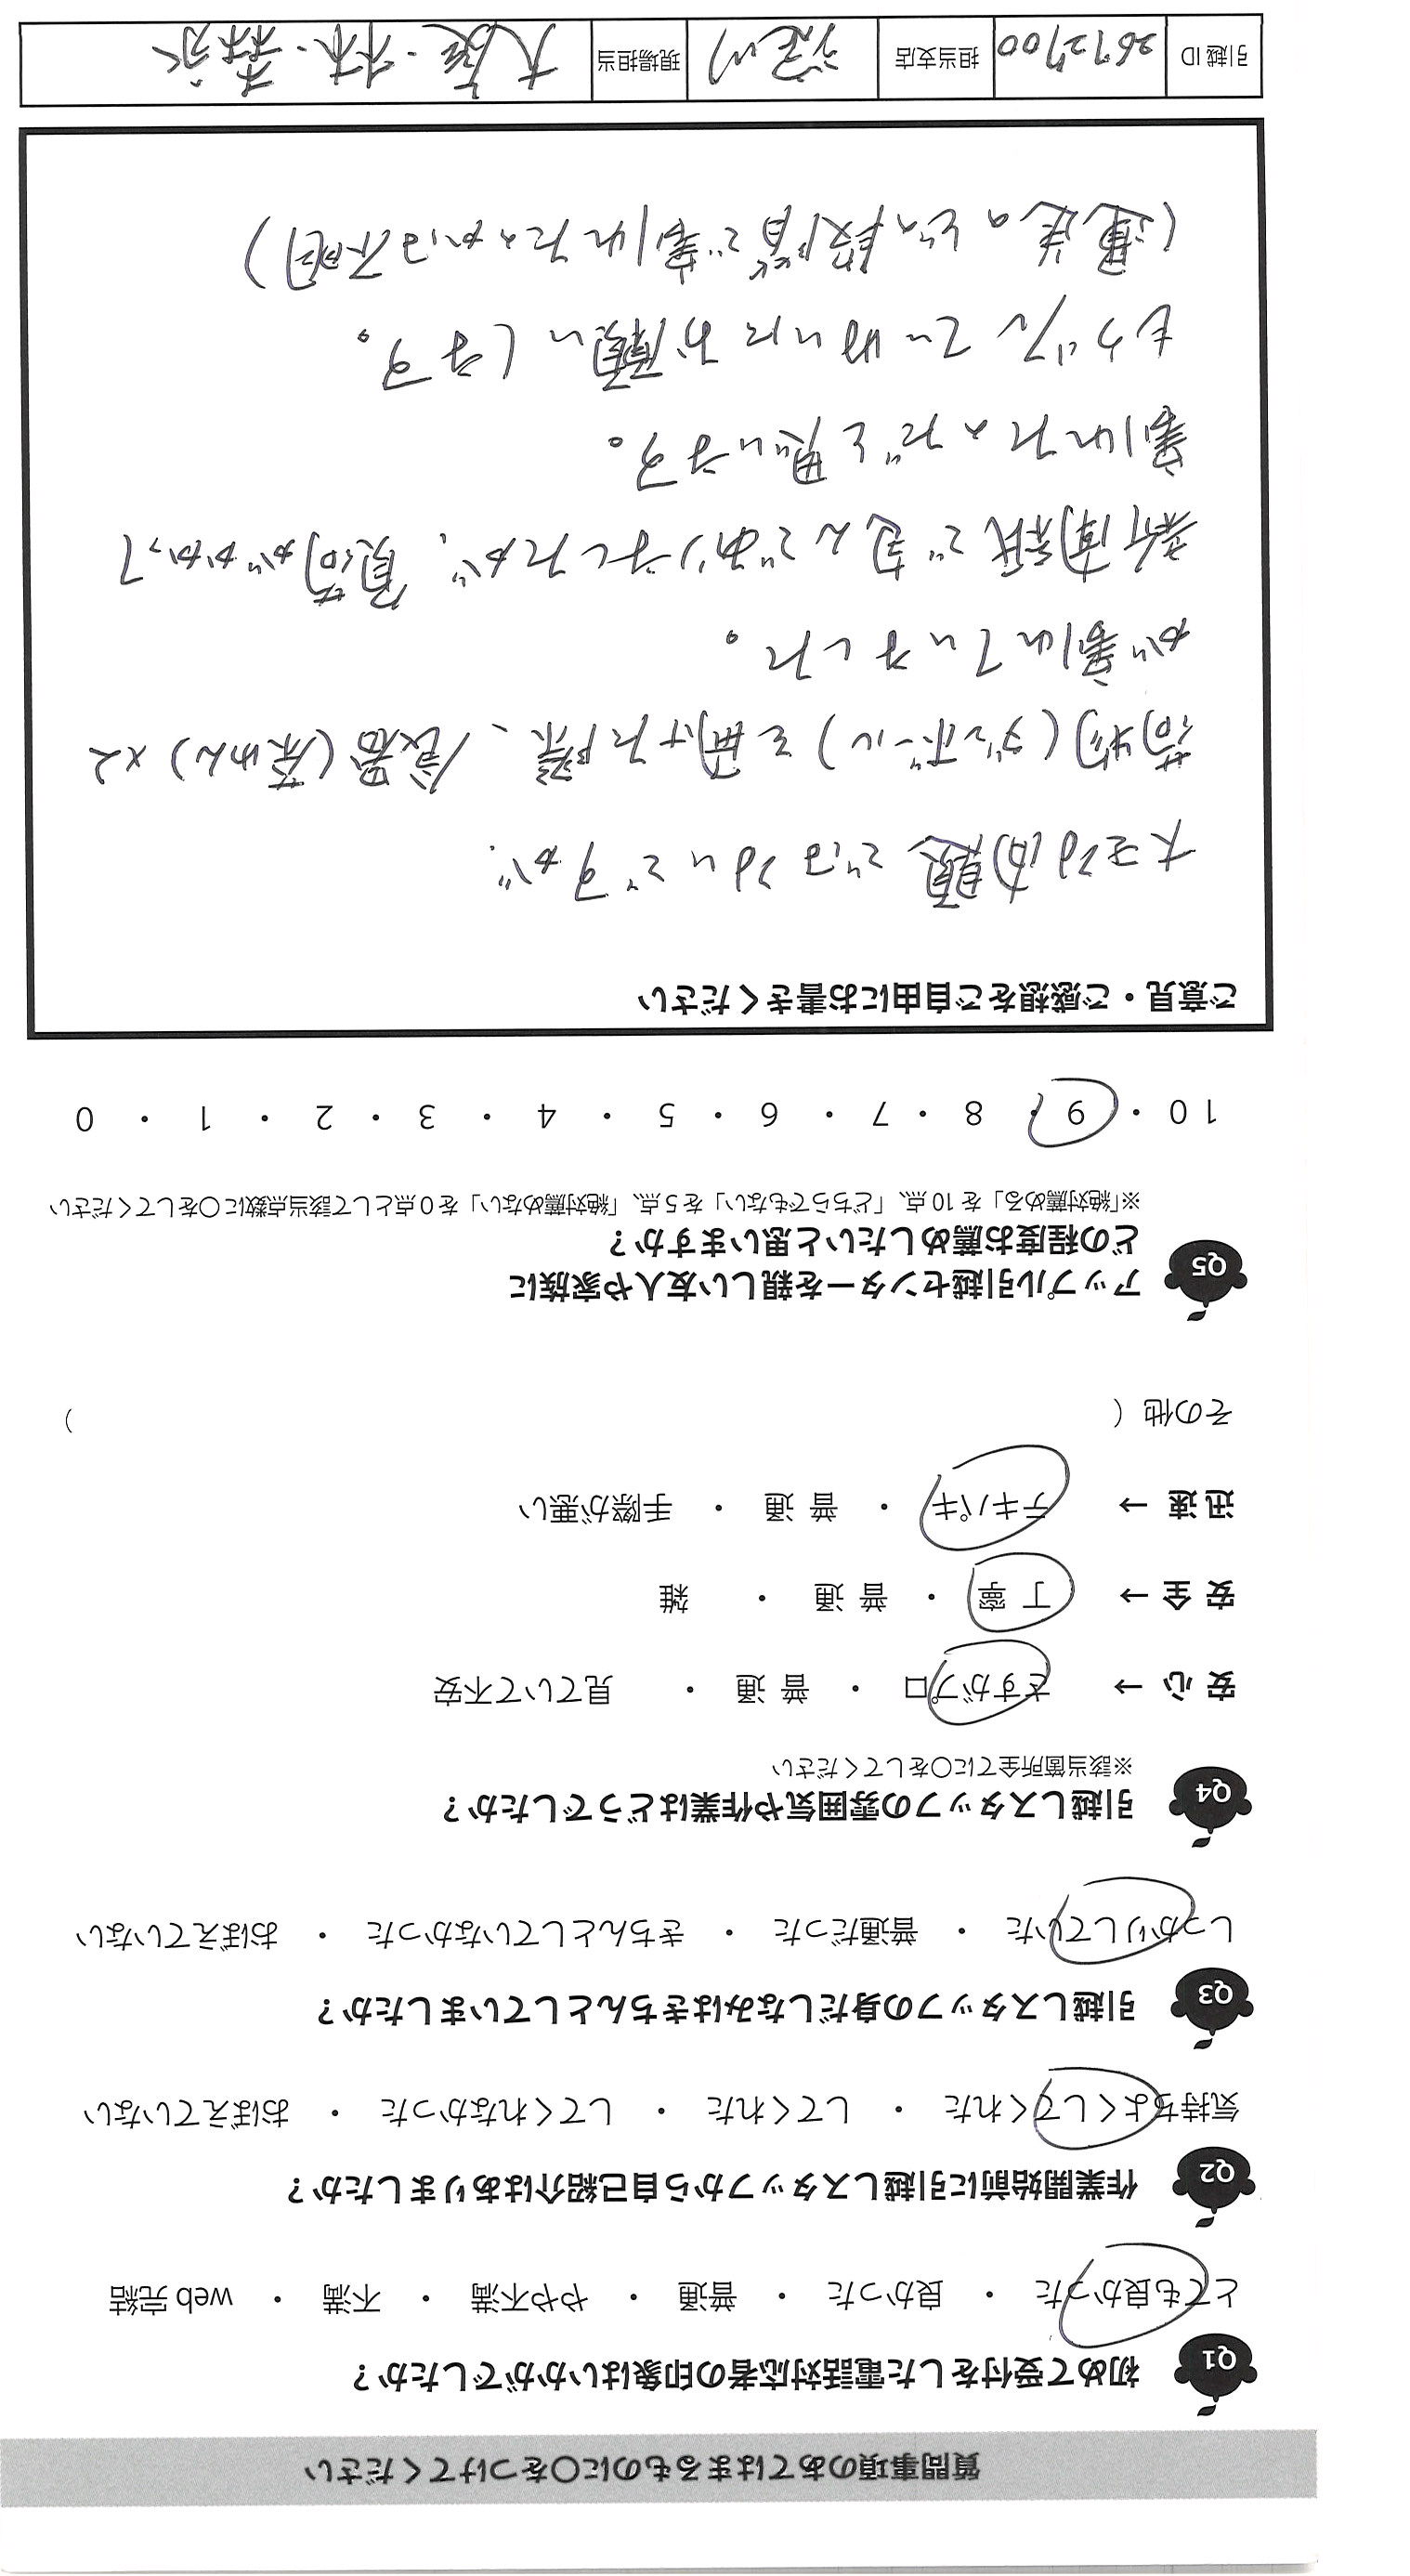 質問事項のあてはまるものに○をつけてください
Q1 初めて受付をした電話対応者の印象はいかがでしたか？
とても良かった ・ 良かった ・ 普通 ・ やや不満 ・ 不満 ・ web 完結
Q2 作業開始前に引越しスタッフから自己紹介はありましたか？
気持ちよくしてくれた ・ してくれた ・ してくれなかった ・ おぼえていない
Q3 引越しスタッフの身だしなみはきちんとしていましたか？
しっかりしていた ・ 普通だった ・ きちんとしていなかった ・ おぼえていない
Q4 引越しスタッフの雰囲気や作業はどうでしたか？
※該当箇所全てに○をしてください
安 心 → さすがプロ ・ 普 通 ・ 見ていて不安
安 全 → 丁 寧 ・ 普 通 ・ 雑
迅 速 → テキパキ ・ 普 通 ・ 手際が悪い
その他（ ）
Q5 アップル引越センターを親しい友人や家族に
どの程度お薦めしたいと思いますか？
※「絶対薦める」を 10 点、「どちらでもない」を 5 点、「絶対薦めない」を 0 点として該当点数に○をしてください
10 ・ 9 ・ 8 ・ 7 ・ 6 ・ 5 ・ 4 ・ 3 ・ 2 ・ 1 ・ 0
ご意見・ご感想をご自由にお書きください
大きな問題ではないですが、
荷物(ダンボール)を開けた際、食器(茶わん)×2
が割れていました。
新聞紙で包んでありましたが、負荷がかかって
割れたのだと思います。
もう少していねいにお願いします。
(運送のどの段階で割れたのかは不明)
引越 ID 2692700 担当支店 淀川 現場担当 大庭・林・森永